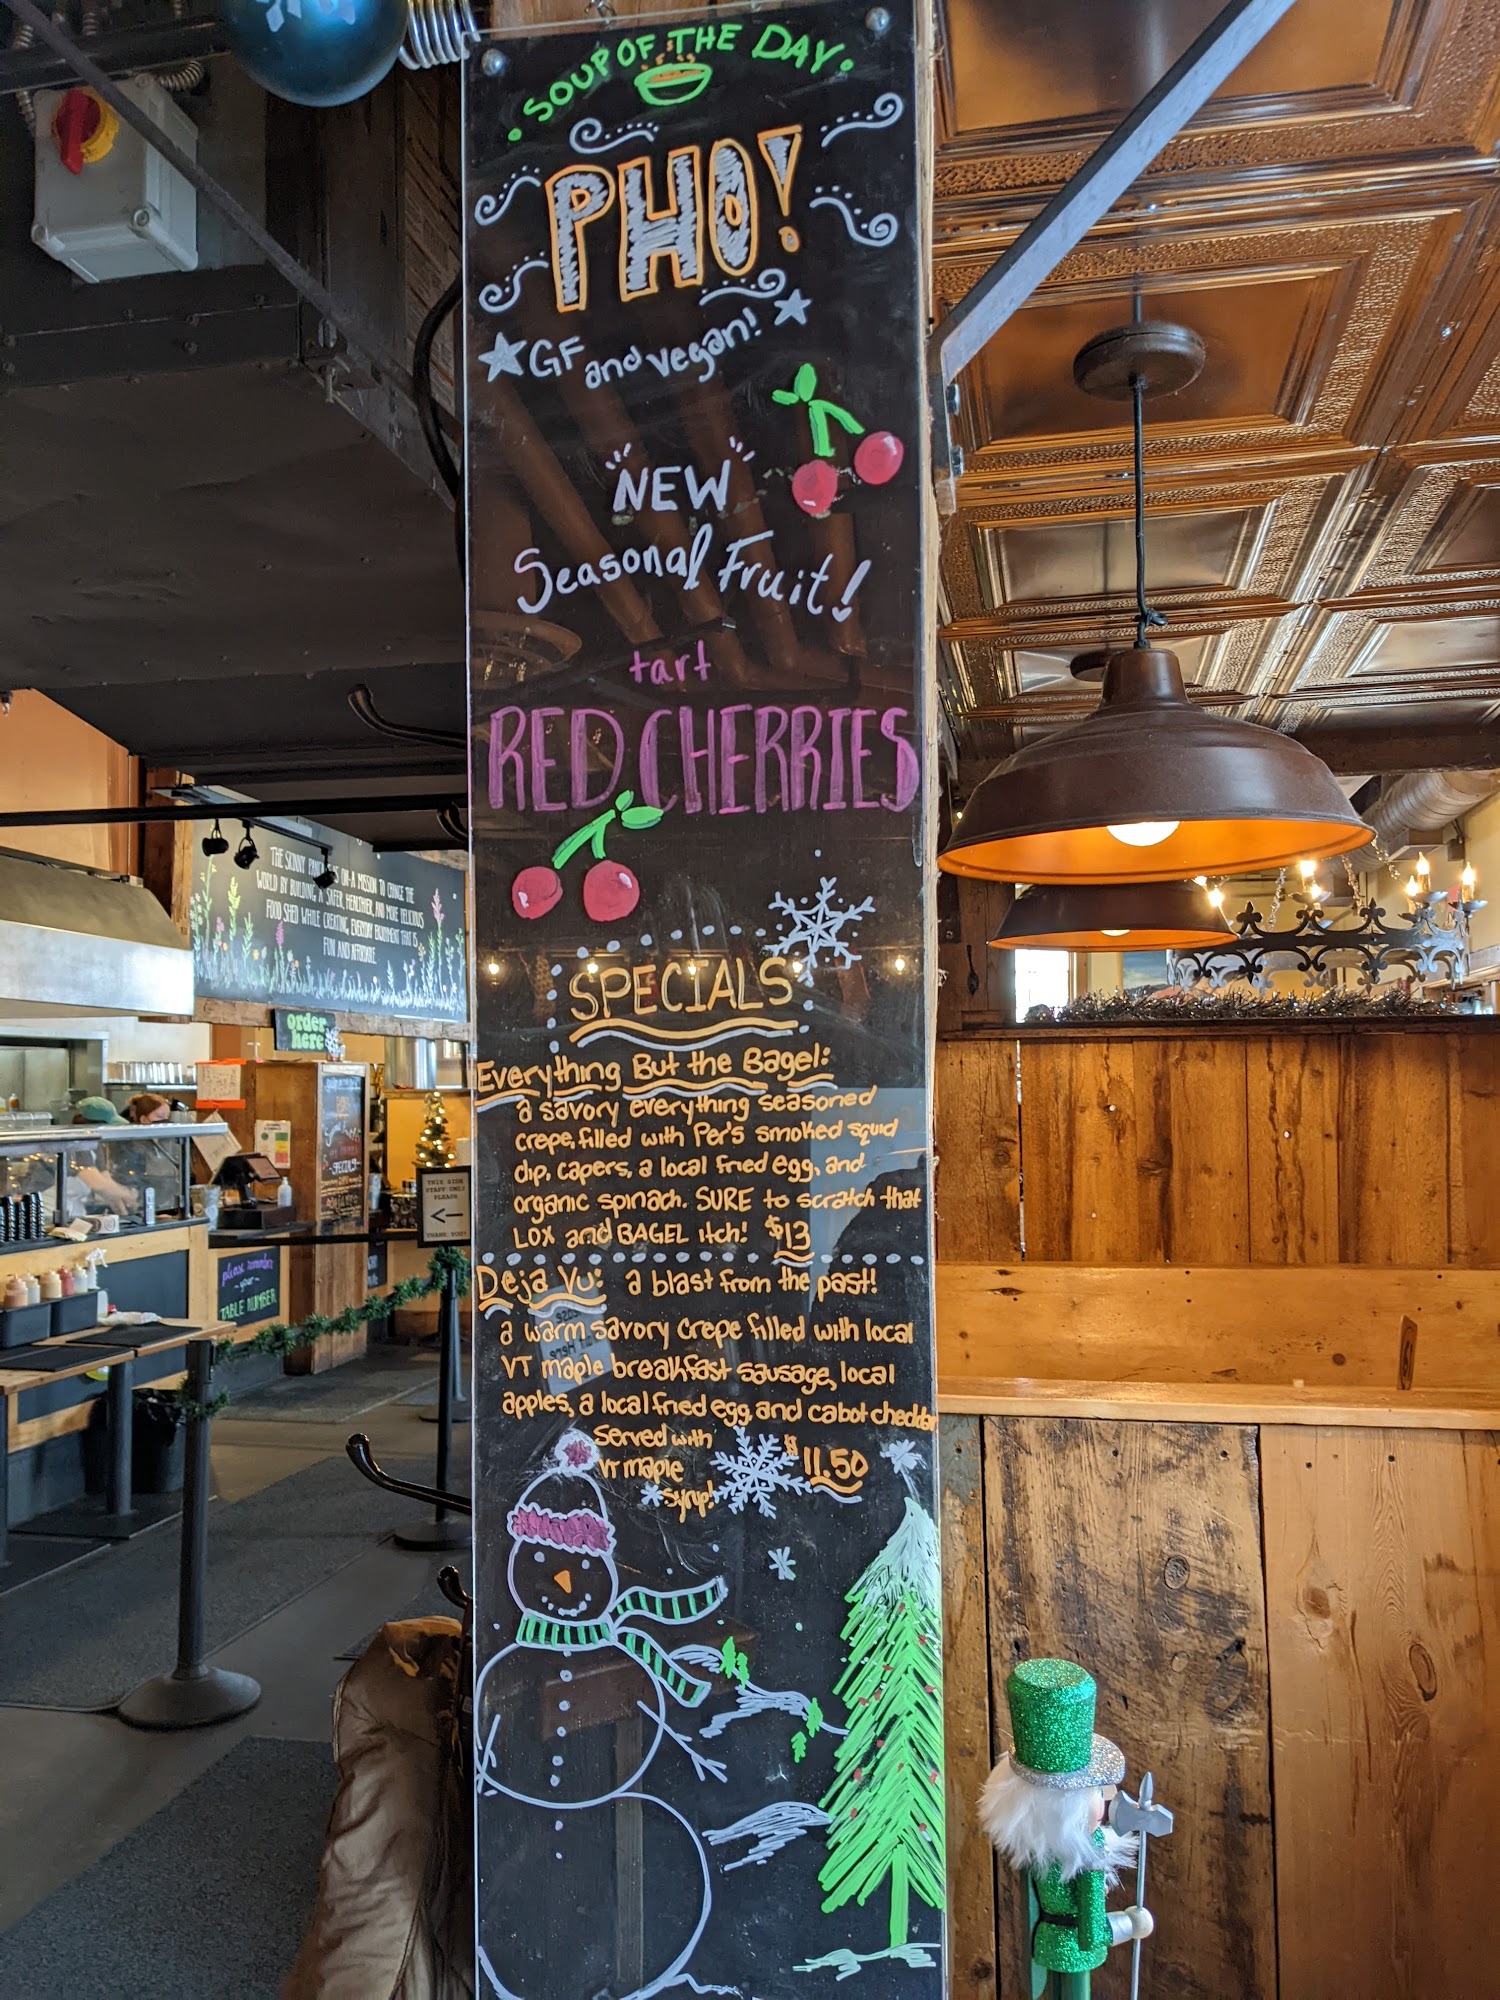 SOUP OF THE DAY
PHO!
GF and vegan!
"NEW"
Seasonal Fruit!
tart
RED CHERRIES
SPECIALS
Everything But the Bagel:
a savory everything seasoned
crepe, filled with Per's smoked squid
dip, capers, a local fried egg, and
organic spinach. SURE to scratch that
LOX and BAGEL itch! $13
Deja Vu: a blast from the past!
a warm savory crepe filled with local
VT maple breakfast sausage, local
apples, a local fried egg, and cabot cheddar
Served with
VT maple
syrup!
$11.50
THE SKINNY PANCAKE IS ON A MISSION TO CHANGE THE
WORLD BY BUILDING A SAFER, HEALTHIER, AND MORE DELICIOUS
FOOD SHED WHILE CREATING EVERYDAY ENJOYMENT THAT IS
FUN AND AFFORDABLE.
order
here
THIS SIDE
STAFF ONLY
PLEASE
THANK YOU!
please remember
-your-
TABLE NUMBER